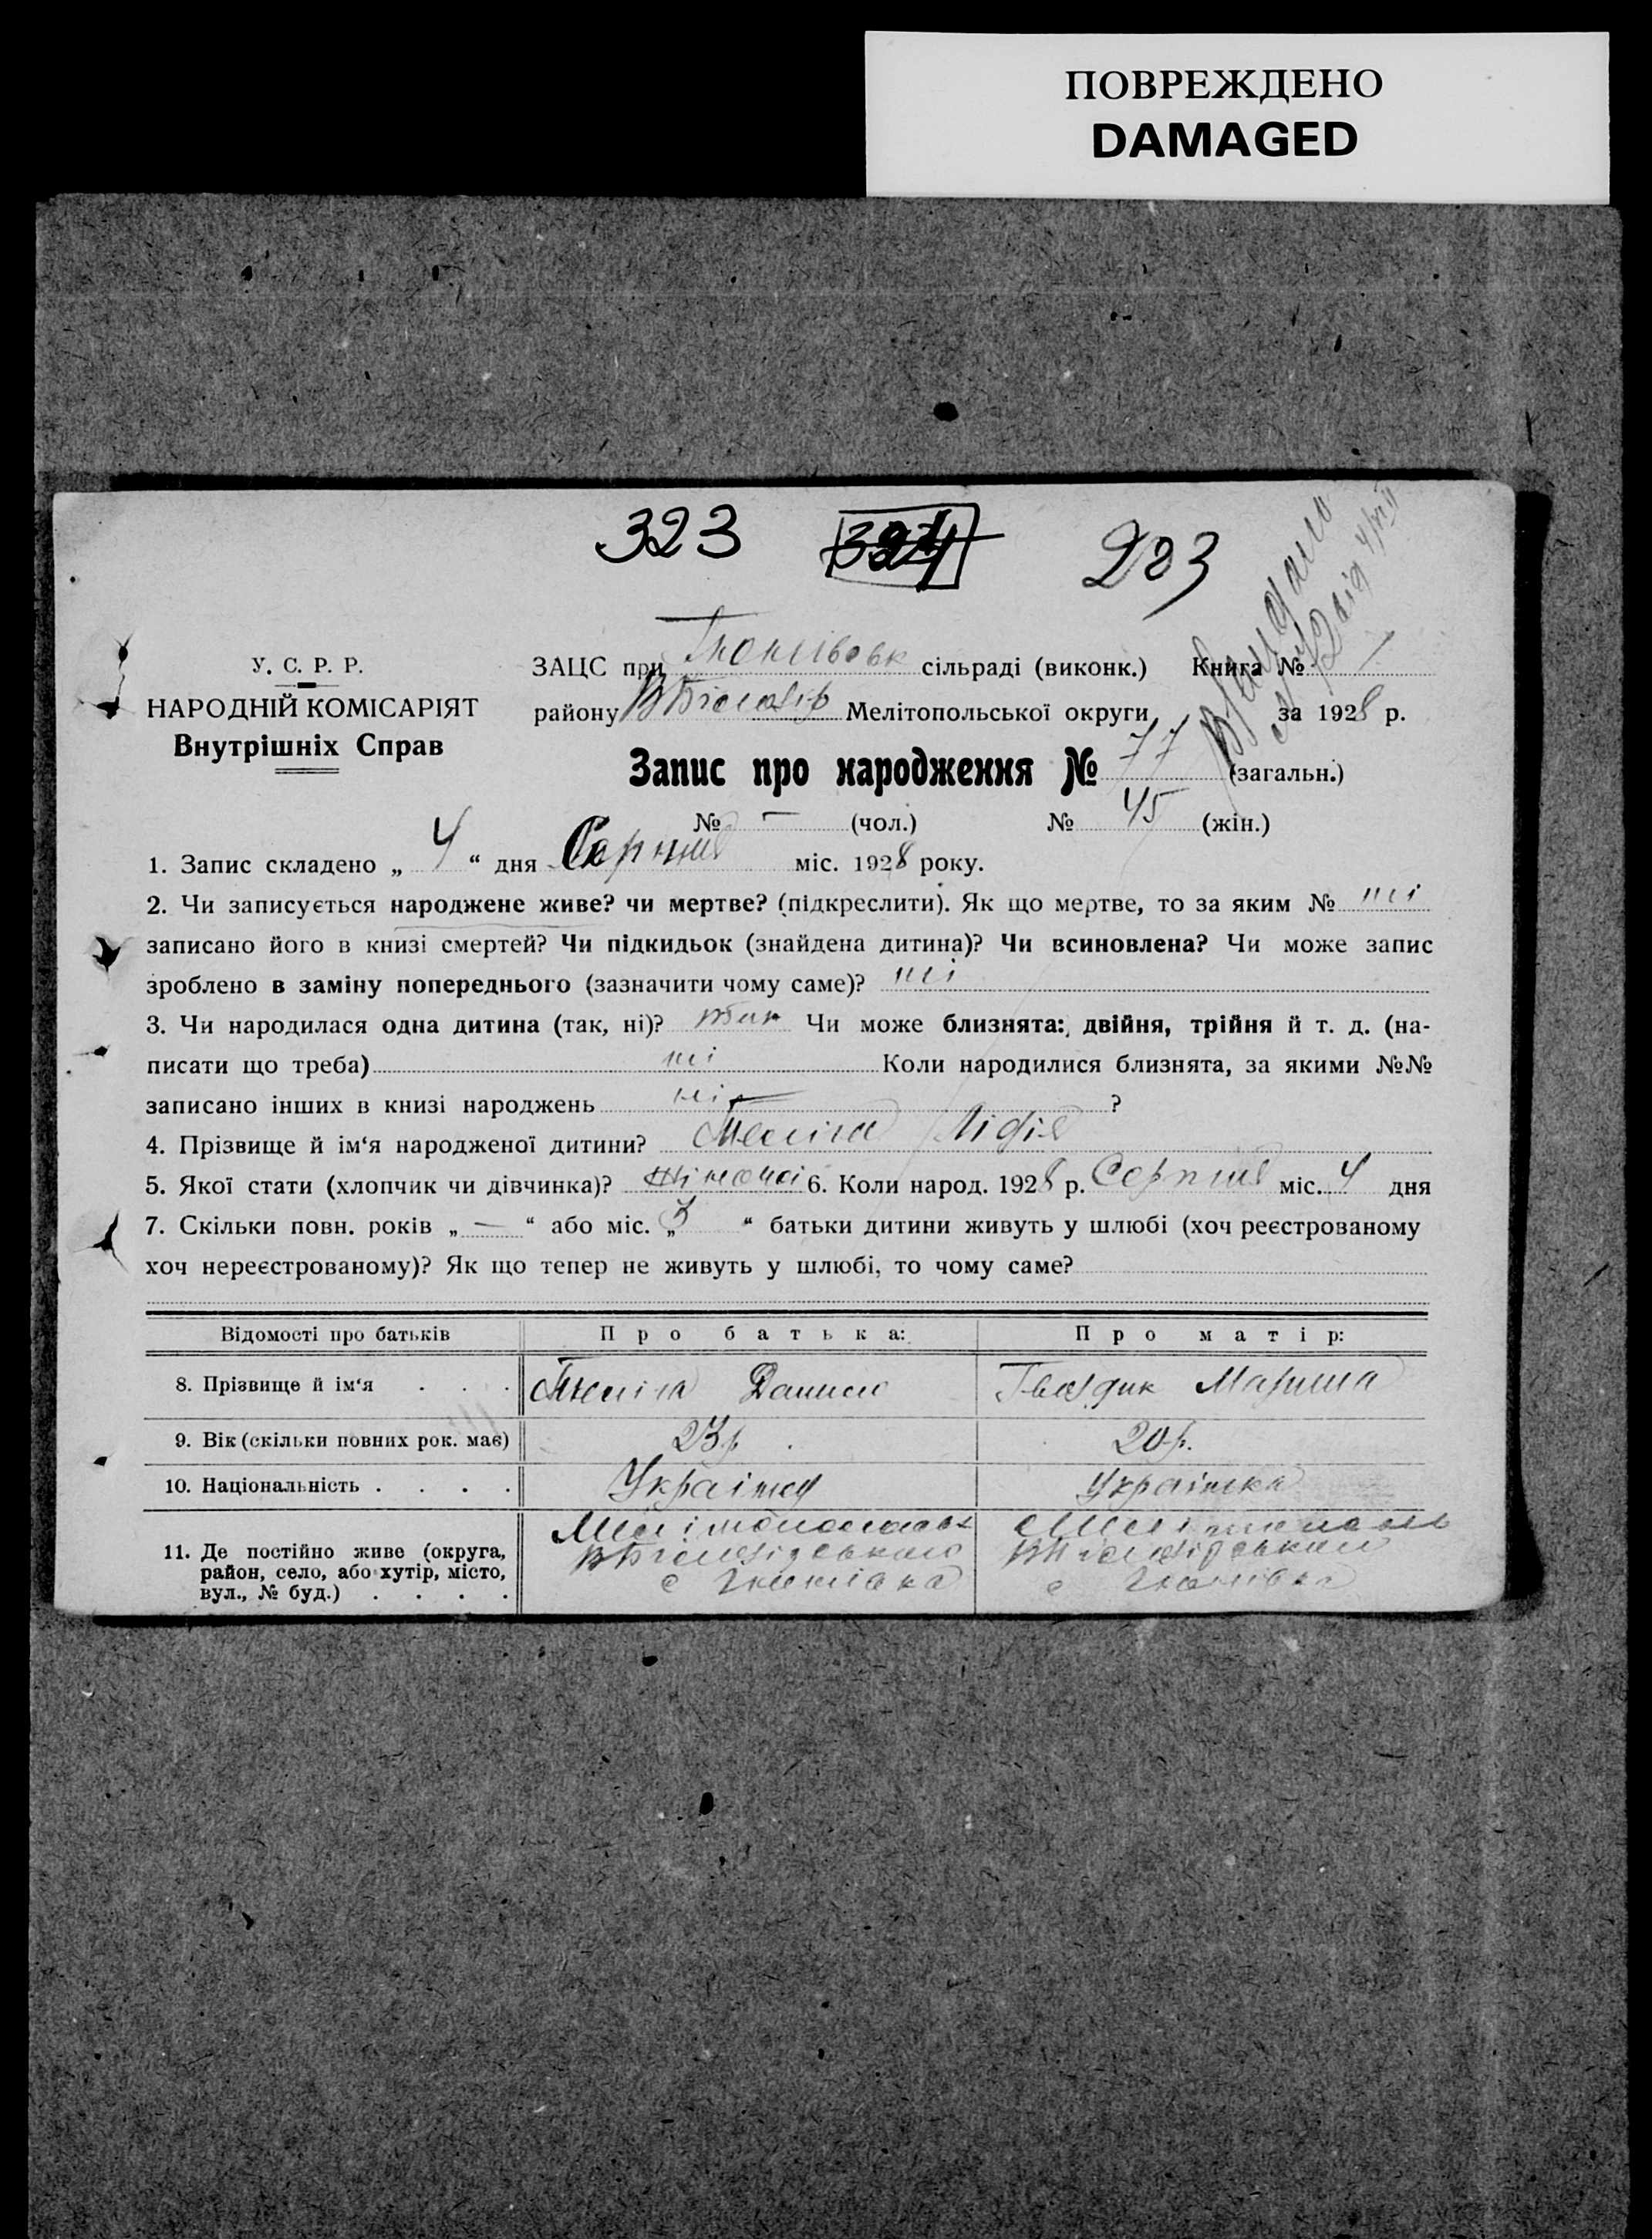 ПОВРЕЖДЕНО
DAMAGED
323 324 283
У. С. Р. Р.
НАРОДНІЙ КОМІСАРІЯТ
Внутрішніх Справ
ЗАЦС при сільраді (виконк.) Книга № 1
району Мелітопольської округи за 1928 р.
Запис про народження № 77 (загальн.)
№ — (чол.) № 45 (жін.)
1. Запис складено „ 4 “ дня Серпня міс. 1928 року.
2. Чи записується народжене живе? чи мертве? (підкреслити). Як що мертве, то за яким № ні
записано його в книзі смертей? Чи підкидьок (знайдена дитина)? Чи всиновлена? Чи може запис
зроблено в заміну попереднього (зазначити чому саме)? ні
3. Чи народилася одна дитина (так, ні)? так Чи може близнята: двійня, трійня й т. д. (на-
писати що треба) ні Коли народилися близнята, за якими №№
записано інших в книзі народжень ні ?
4. Прізвище й ім‘я народженої дитини? Лідія
5. Якої стати (хлопчик чи дівчинка)? жіночої 6. Коли народ. 1928 р. Серпня міс. 4 дня
7. Скільки повн. років „ — “ або міс. „ 3 “ батьки дитини живуть у шлюбі (хоч реєстрованому
хоч нереєстрованому)? Як що тепер не живуть у шлюбі, то чому саме?
Відомості про батьків Про батька: Про матір:
8. Прізвище й ім‘я . . . Данило Гвоздик Марина
9. Вік (скільки повних рок. має) 23 р. 20 р.
10. Національність . . . . Українец Українка
11. Де постійно живе (округа,
район, село, або хутір, місто,
вул., № буд.) . . . .